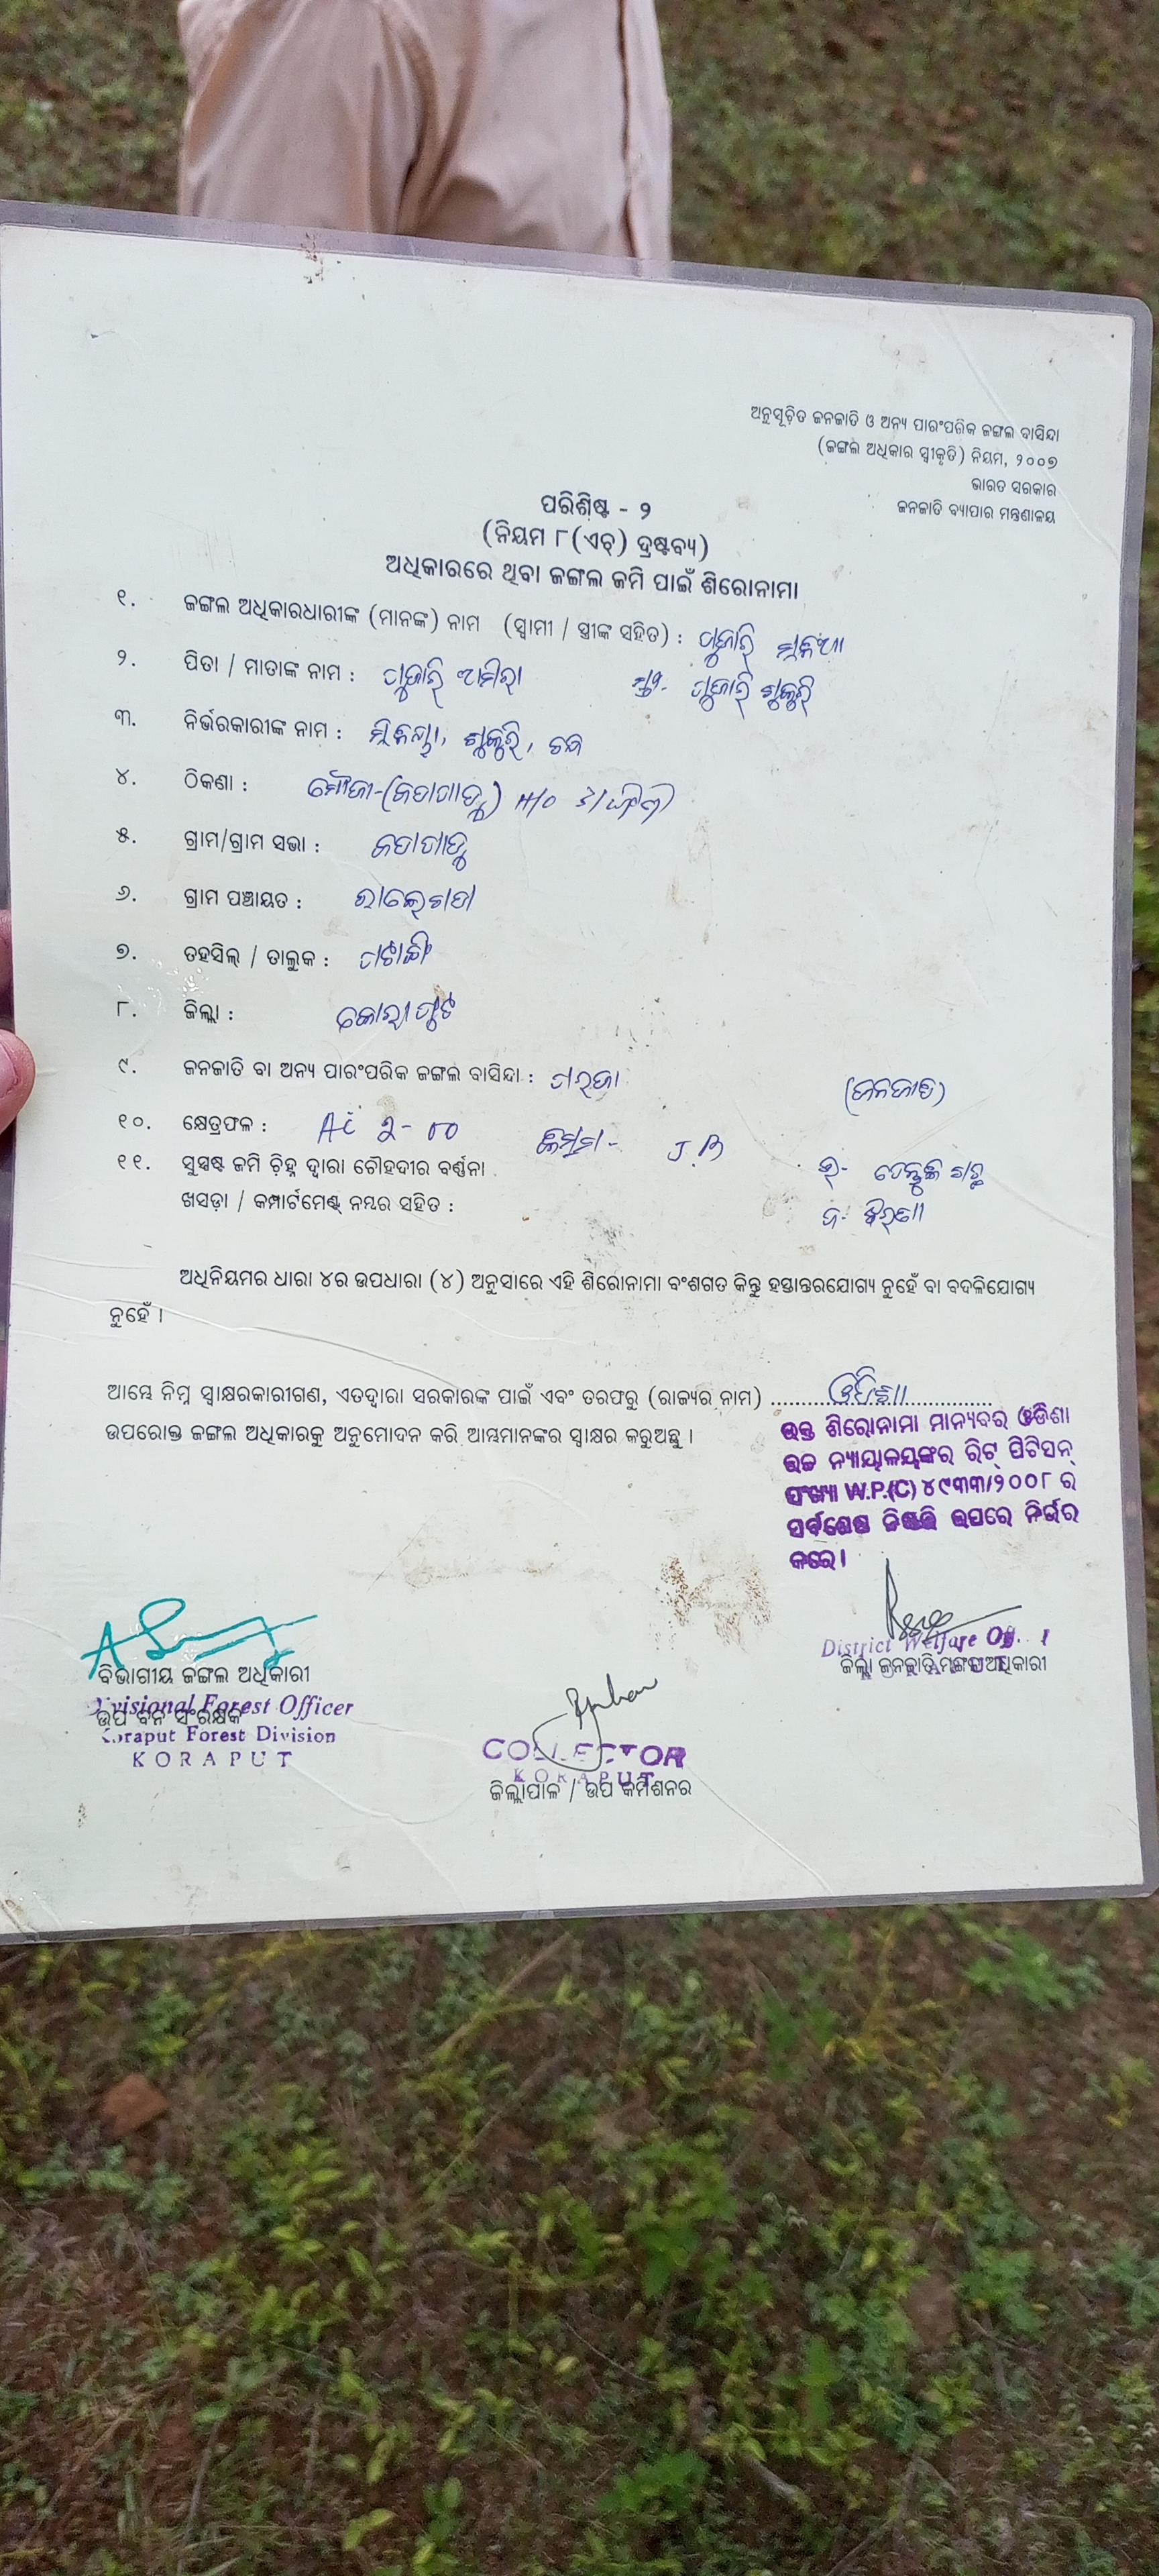 ଅନୁସୂଚିତ ଜନଜାତି ଓ ଅନ୍ୟ ପାରଂପରିକ ଜଙ୍ଗଲ ବାସିନ୍ଦା
(ଜଙ୍ଗଲ ଅଧିକାର ସ୍ୱୀକୃତି) ନିୟମ, ୨୦୦୭
ଭାରତ ସରକାର
ଜନଜାତି ବ୍ୟାପାର ମନ୍ତ୍ରଣାଳୟ
ପରିଶିଷ୍ଟ - ୨
(ନିୟମ ୮(ଏଚ୍) ଦ୍ରଷ୍ଟବ୍ୟ)
ଅଧିକାରରେ ଥିବା ଜଙ୍ଗଲ ଜମି ପାଇଁ ଶିରୋନାମା
୧. ଜଙ୍ଗଲ ଅଧିକାରଧାରୀଙ୍କ (ମାନଙ୍କ) ନାମ (ସ୍ୱାମୀ / ସ୍ତ୍ରୀଙ୍କ ସହିତ) : ପୁଜାରି
୨. ପିତା / ମାତାଙ୍କ ନାମ : ପୁଜାରି ପୁଜାରି ଶୁକ୍ରୁରି
୩. ନିର୍ଭରକାରୀଙ୍କ ନାମ : ଶୁକ୍ରୁରି,
୪. ଠିକଣା : ମୌଜା-
୫. ଗ୍ରାମ/ଗ୍ରାମ ସଭା :
୬. ଗ୍ରାମ ପଞ୍ଚାୟତ :
୭. ତହସିଲ୍ / ତାଲୁକ : ପଟାଙ୍ଗି
୮. ଜିଲ୍ଲା : କୋରାପୁଟ
୯. ଜନଜାତି ବା ଅନ୍ୟ ପାରଂପରିକ ଜଙ୍ଗଲ ବାସିନ୍ଦା : ପରଜା (ଜନଜାତି)
୧୦. କ୍ଷେତ୍ରଫଳ : AC ୨-୦୦ କିସମ-
୧୧. ସୁସ୍ପଷ୍ଟ ଜମି ଚିହ୍ନ ଦ୍ୱାରା ଚୌହଦୀର ବର୍ଣ୍ଣନା ଉ- ତେନ୍ତୁଳି ଗଛ
ଖସଡ଼ା / କମ୍ପାର୍ଟମେଣ୍ଟ୍ ନମ୍ବର ସହିତ : ଦ-
ଅଧିନିୟମର ଧାରା ୪ର ଉପଧାରା (୪) ଅନୁସାରେ ଏହି ଶିରୋନାମା ବଂଶଗତ କିନ୍ତୁ ହସ୍ତାନ୍ତରଯୋଗ୍ୟ ନୁହେଁ ବା ବଦଳିଯୋଗ୍ୟ
ନୁହେଁ ।
ଆମ୍ଭେ ନିମ୍ନ ସ୍ୱାକ୍ଷରକାରୀଗଣ, ଏତଦ୍ୱାରା ସରକାରଙ୍କ ପାଇଁ ଏବଂ ତରଫରୁ (ରାଜ୍ୟର ନାମ) ଓଡିଶା
ଉପରୋକ୍ତ ଜଙ୍ଗଲ ଅଧିକାରକୁ ଅନୁମୋଦନ କରି ଆମ୍ଭମାନଙ୍କର ସ୍ୱାକ୍ଷର କରୁଅଛୁ ।
ଉକ୍ତ ଶିରୋନାମା ମାନ୍ୟବର ଓଡିଶା
ଉଚ୍ଚ ନ୍ୟାୟାଳୟଙ୍କର ରିଟ୍ ପିଟିସନ୍
ସଂଖ୍ୟା W.P.(C) ୪୯୩୩/୨୦୦୮ ର
ସର୍ବଶେଷ ନିଷ୍ପତ୍ତି ଉପରେ ନିର୍ଭର
କରେ।
District Welfare
ଜିଲ୍ଲା ଜନଜାତି ମଙ୍ଗଳ ଅଧିକାରୀ
ବିଭାଗୀୟ ଜଙ୍ଗଲ ଅଧିକାରୀ
Divisional Forest Officer
ଉପ ବନ ସଂରକ୍ଷକ
Koraput Forest Division
KORAPUT
COLLECTOR
KORAPUT
ଜିଲ୍ଲାପାଳ / ଉପ କମିଶନର